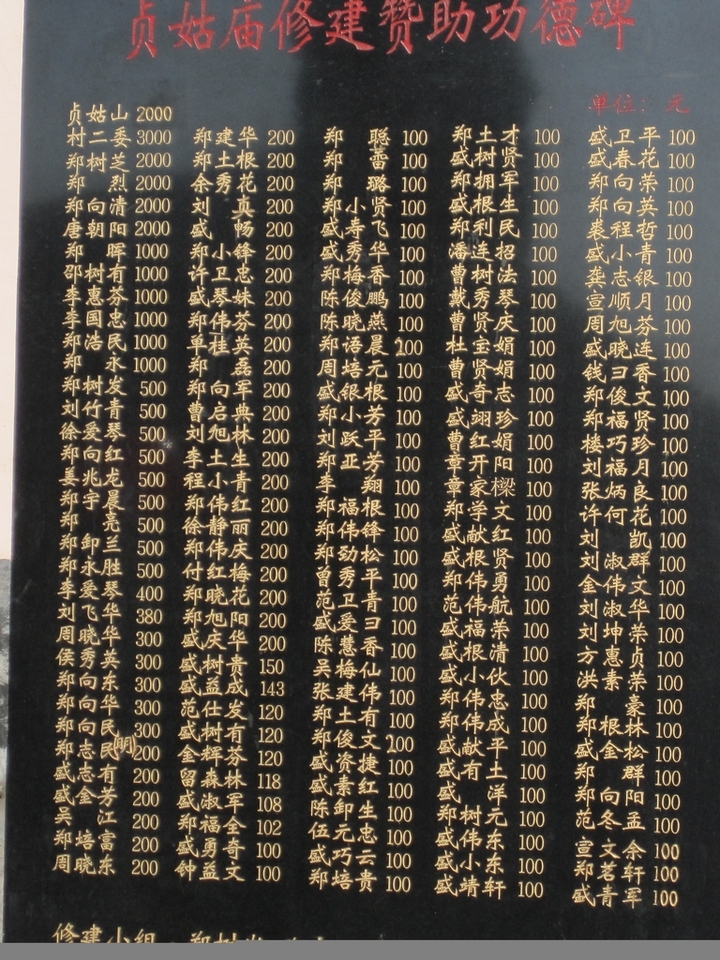 贞姑庙修建赞助功德碑
单位：元
贞姑山 2000
村二委 3000
郑树芝 2000
郑 烈 2000
郑向清 2000
唐朝阳 2000
郑 晖 1000
邵树有 1000
李惠芬 1000
李国忠 1000
郑浩民 1000
郑 永 1000
郑树发 500
刘竹青 500
徐爱琴 500
郑向红 500
姜兆龙 500
郑宇晨 500
郑 亮 500
郑卸兰 500
郑永胜 500
李爱琴 400
刘飞华 380
周晓华 300
侯秀英 300
郑向东 300
郑向华 300
郑向民 300
郑志明 200
盛志有 200
盛金芳 200
吴 江 200
郑培富 200
周晓东 200
郑建华 200
郑土根 200
余秀花 200
刘 真 200
盛 畅 200
郑小锋 200
许卫忠 200
盛琴妹 200
郑伟芬 200
单桂英 200
郑 磊 200
郑向军 200
曹启典 200
刘旭林 200
李土生 200
程小青 200
郑伟红 200
徐静丽 200
郑伟庆 200
付红梅 200
郑晓花 200
郑旭阳 200
盛庆华 200
盛树贵 150
盛益成 143
范仕发 120
盛树有 120
金辉芬 120
留森林 118
盛淑军 108
郑福全 102
盛勇奇 100
钟益文 100
郑 聪 100
郑 蕾 100
郑 璐 100
郑小贤 100
盛寿飞 100
盛秀华 100
郑梅香 100
陈俊鹏 100
陈晓燕 100
郑语晨 100
周培元 100
盛银根 100
郑小芳 100
刘跃平 100
郑亚芳 100
李 翔 100
郑福根 100
郑伟锋 100
郑劲松 100
曾秀平 100
范卫青 100
盛爱彐 100
陈慧香 100
吴梅仙 100
张建伟 100
郑土有 100
郑俊文 100
盛资捷 100
盛素红 100
陈卸生 100
伍元忠 100
盛巧云 100
郑培贵 100
郑土才 100
盛树贤 100
郑拥军 100
盛根生 100
郑利民 100
潘连招 100
曹树法 100
戴秀琴 100
曹贤庆 100
杜宝娟 100
曹贤娟 100
盛奇志 100
盛翊珍 100
曹红娟 100
章开阳 100
章家樑 100
郑学文 100
盛献红 100
盛根贤 100
郑伟勇 100
范伟航 100
盛福荣 100
盛根清 100
盛小伙 100
郑伟忠 100
郑伟成 100
盛献平 100
盛有土 100
盛 洋 100
郑树元 100
盛伟东 100
盛小东 100
盛靖轩 100
盛卫平 100
盛春花 100
郑向荣 100
郑向英 100
裘程哲 100
盛小青 100
龚志银 100
宣顺月 100
周旭芬 100
盛晓连 100
钱彐香 100
郑俊文 100
郑福贤 100
楼巧珍 100
刘福月 100
张炳良 100
许何花 100
刘 凯 100
刘淑群 100
金伟文 100
刘淑华 100
刘坤荣 100
方惠贞 100
洪素荣 100
郑 豪 100
郑根林 100
盛金松 100
郑 群 100
郑向阳 100
范冬孟 100
宣文余 100
郑茗轩 100
盛青军 100
修建小组：郑树发